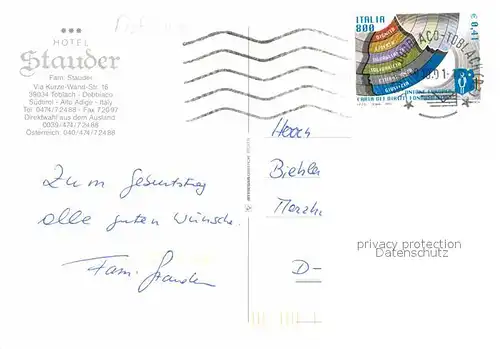 HOTEL
Stauder
Fam. Stauder
Via Kurze-Wand-Str. 16
39034 Toblach - Dobbiaco
Südtirol - Alto Adige - Italy
Tel 0474/72488 - Fax 72097
Direktwahl aus dem Ausland
0039/474/72488
Österreich: 040/474/72488
ITALIA
800
€ 0,41
ACO-TOBLAC
DIGNITÀ
LIBERTÀ
UGUAGLIANZA
SOLIDARIETÀ
CITTADINANZA
GIUSTIZIA
UNIONE EUROPEA
CARTA DEI DIRITTI FONDAMENTALI
Zum Geburtstag
alle guten Wünsche.
Fam. Stauder
Hooch
Biehle
D-
privacy protection
Datenschutz